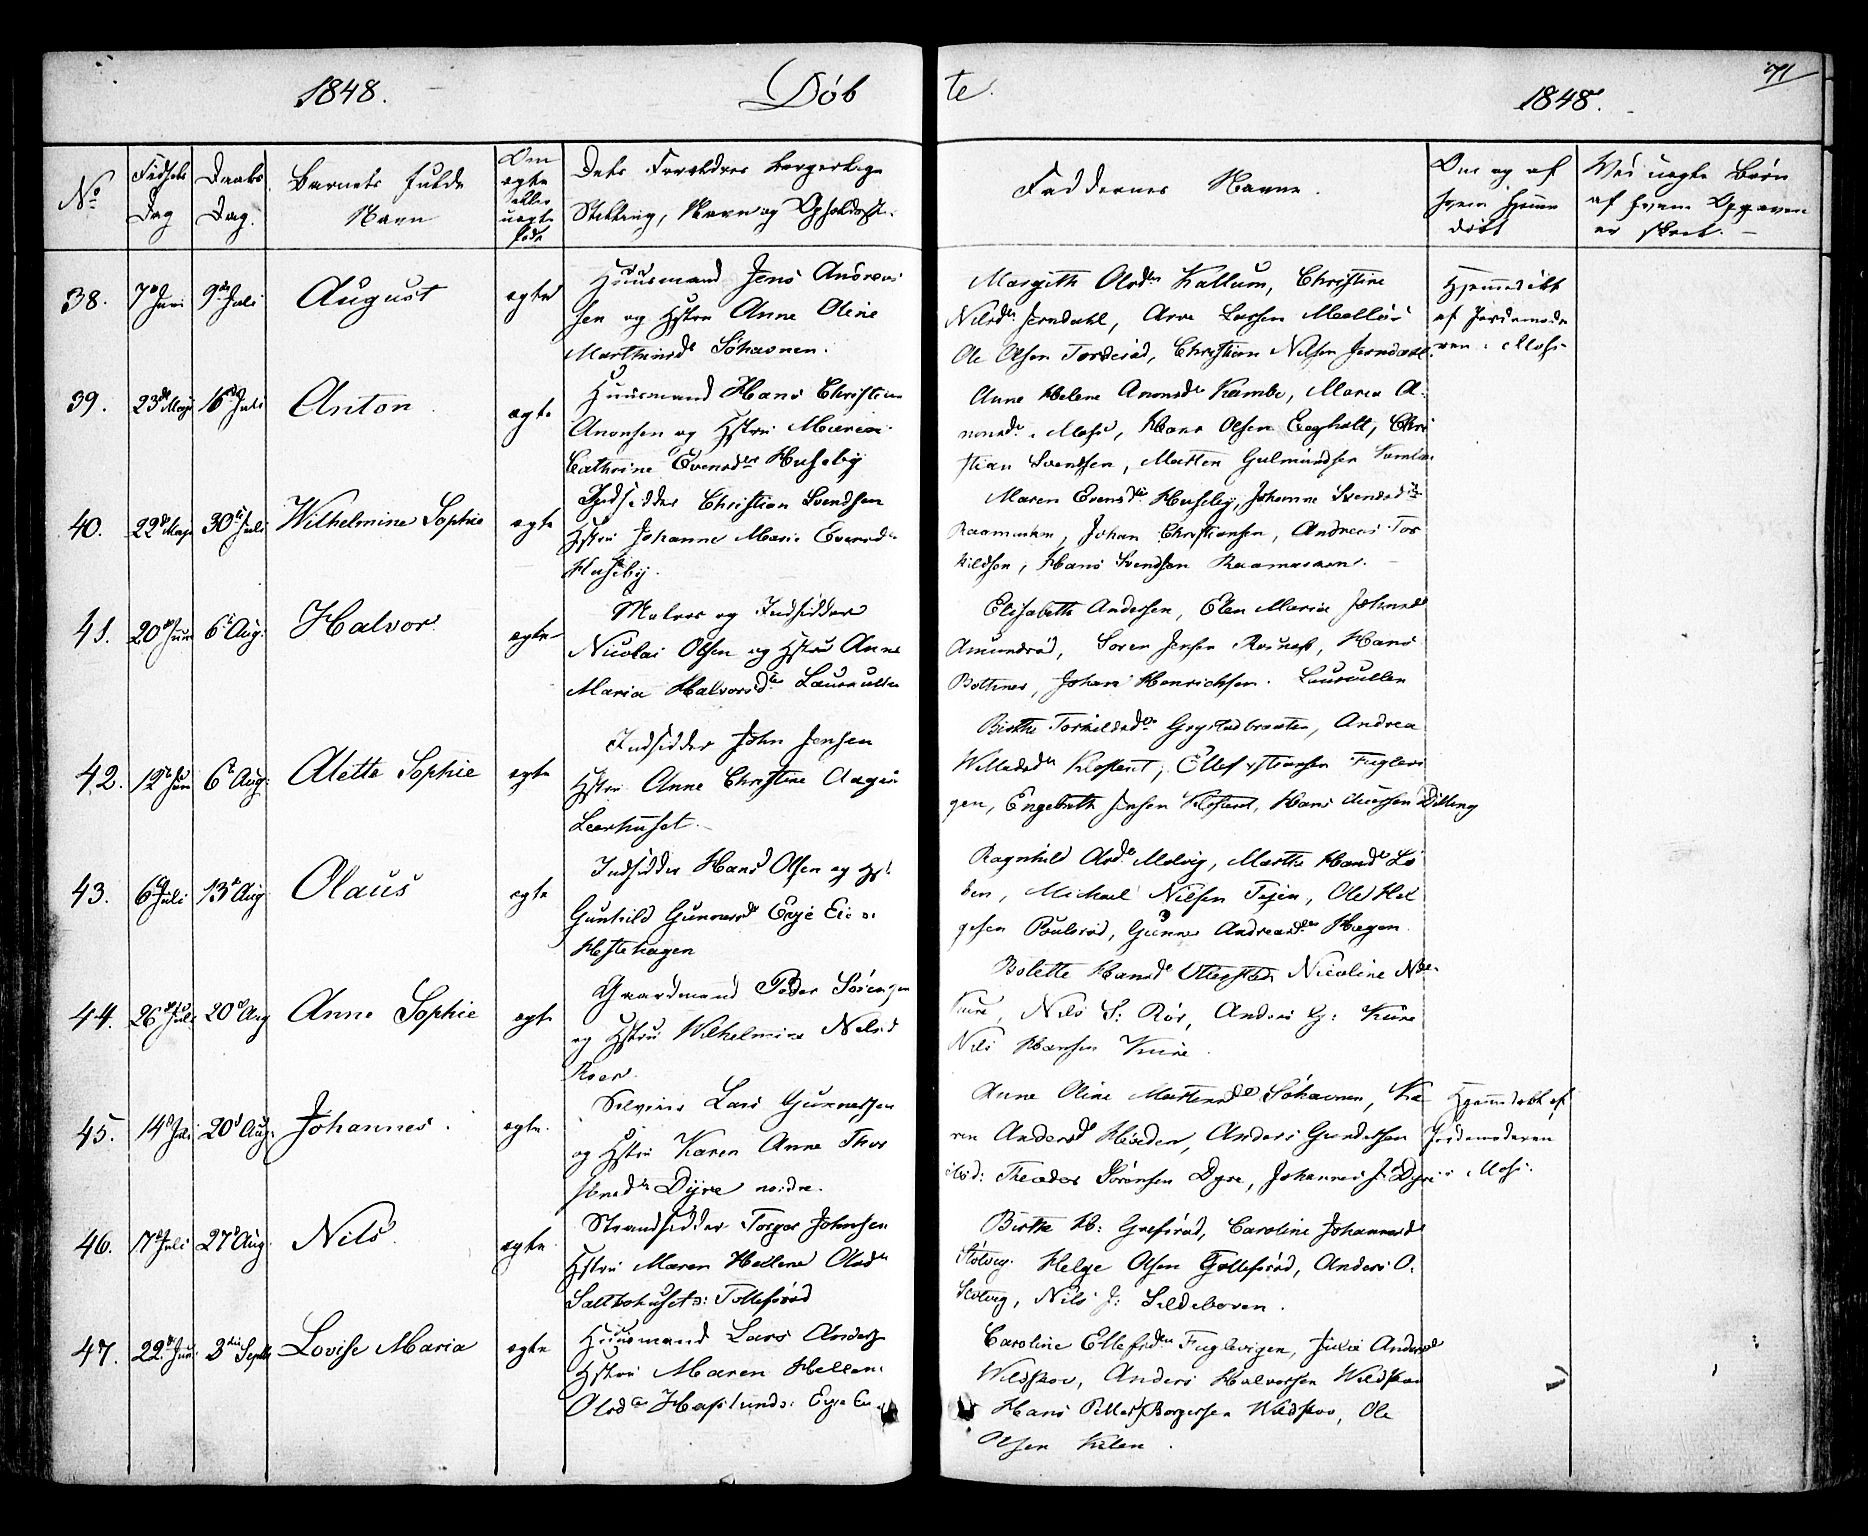 1848. Döbte. 1848. 71
No
Födsels Dag
Daabs Dag.
Barnets fulde Navn
Om egte eller uegte født
Dets Forældres borgerlige
Stilling, Navn og Opholdsst.
Faddernes Navne.
Om og af hvem hjemmedøbt
Ved uegte Børn
af hvem Opgaven
er skeet.
38. 7de Juni 9de Juli August egte
Huusmand Jens Andreas
sen og Hstru Anne Oline
Marthinsdr Söhavnen.
Margith Olsdr Kallum, Christine
Nilsdr Jerndahl, Arve Larsen Melløs
Ole Olsen Torderød, Christian Nilsen Jerndahl
Hjemmedöbt
af Jordemode
ren i Moss
39. 23de Maji 16de Juli Anton egte
Huusmand Hans Christian
Aronsen og Hstru Maren
Cathrine Evensdr Huseby
Anne Helene Aronsdr Kambo, Maren A
ronsdr i Moss, Hans Olsen Eegholt, Chri
stian Svendsen, Morten Gulmundsen
40. 22de Maji 30te Juli Wilhelmine Sophie egte
Indsidder Christian Svendsen
Hstru Johanne Marie Evensdr
Huseby.
Maren Evensdr Huseby, Johanne Svendsdr
Raamasken, Johan Christiansen, Andreas Tor
kildsen, Hans Svendsen Raamasken.
41. 20de Juni 6te Aug. Halvor egte
Maler og Indsidder
Nicolai Olsen og Hstru Anne
Maria Halvorsdr Laurcullen
Elisabeth Andersen, Elen Maria Johnsdr
Amundrød, Soren Jensen Rosnæss, Hans
Bothner, Johan Henrichsen Laurcullen
42. 12te Juni 6te Aug. Alette Sophie egte
Indsidder John Jensen
Hstru Anne Christine Aagesd
Leerhuset.
Birthe Torkildsdr Grystadbraaten, Andrea
Willadsdr Klostert, Ellef Christiansen Fuglevi
gen, Engebreth Jensen Klostert, Hans Dilling
43. 6te Juli 13de Aug Olaus egte
Indsidder Hans Olsen og Hst.
Gunhild Gunnersdr Evje Eie
Hestehagen
Ragnhild Olsdr Molvig, Marthe Hansdr Lö
ken, Michael Nilsen Tejen, Ole Hel
gesen Poulsrød, Gunner Andreasen Hagen.
44. 26de Juli 20de Aug Anne Sophie egte
Gaardmand Peder Sörensen
og Hstru Wilhelmine Nilsd
Roer.
Bolette Hansdr Nicoline
Kure, Nils S: Rör, Anders G: Kure
Nils Hansen Kure.
45. 14de Juli 20de Aug. Johannes. egte.
Selveier Lars Gunnersen
og Hstru Karen Anne Thor
stensdr Dyre nordre.
Anne Oline Martinsdr Söhavnen, Ka
ren Andersdr Heieden, Anders Gundersen
Theodor Sörensen Dyre, Johannes J: Dyre
Hjemmedöbt af
Jordemoderen
i Moss.
46. 17de Juli 27de Aug. Nils. egte
Strandsidder Torger Johnsen
Hstru Maren Hellene Olsdr
Saltbohuset: Tollefsröd
Birthe H: Grefsröd, Caroline Johannesdr
Stolvig. Helge Olsen Tollefsröd, Anders O.
Stolvig, Nils J: Sildeboren.
47. 22de Juni 3die Septbr Lovise Maria egte
Huusmand Lars Anders
Hstru Maren Hellene
Olsdr Haslund: Evje Eie
Caroline Ellefsdr Fuglevigen, Julie Andersdr
Wildskov, Anders Halvorsen Wildskov
Hans Petter Borgersen Wildskov, Ole
Olsen Kilen.